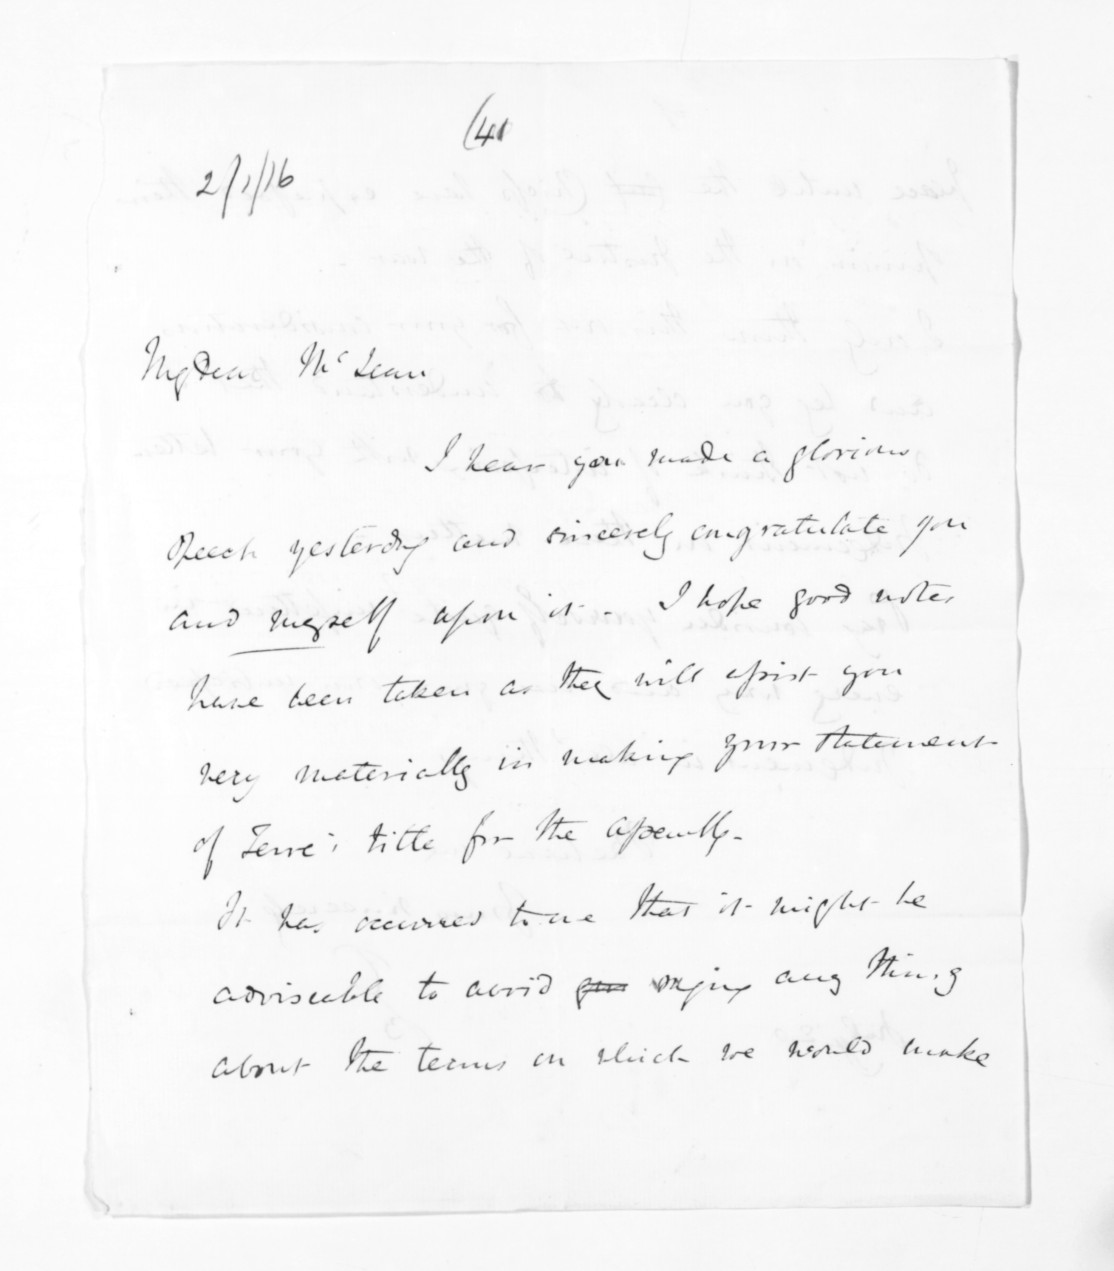 (41
2/1/16
My dear McLean
I hear you made a glorious
speech yesterday and sincerely congratulate you
and myself upon it. I hope good notes
have been taken as they will assist you
very materially in making your statement
of Teira's title for the assembly.
It has occurred to me that it might be
adviseable to avoid saying any thing
about the terms on which we would make